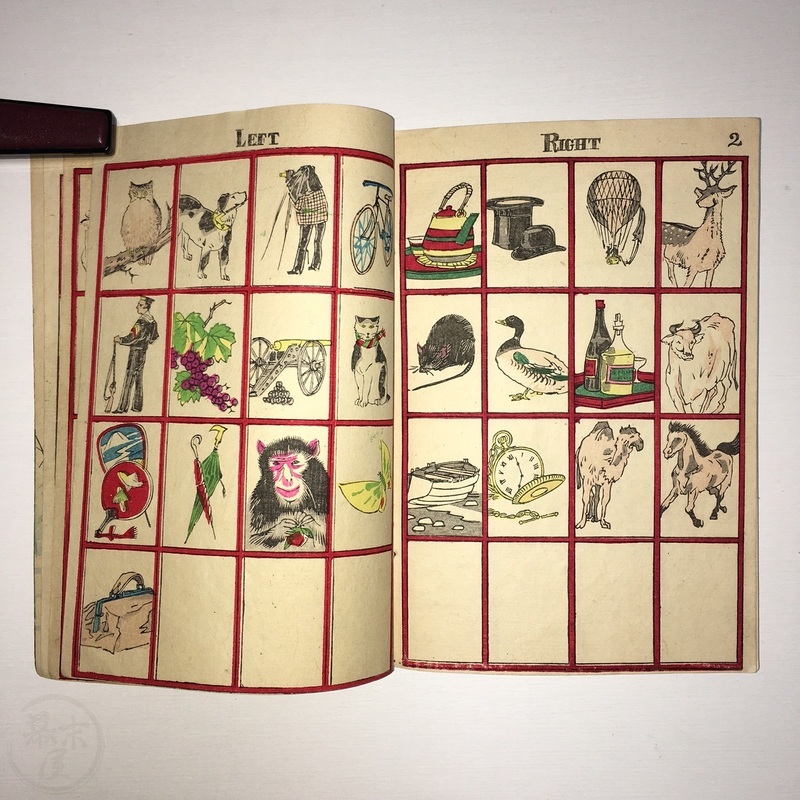 LEFT
RIGHT
2